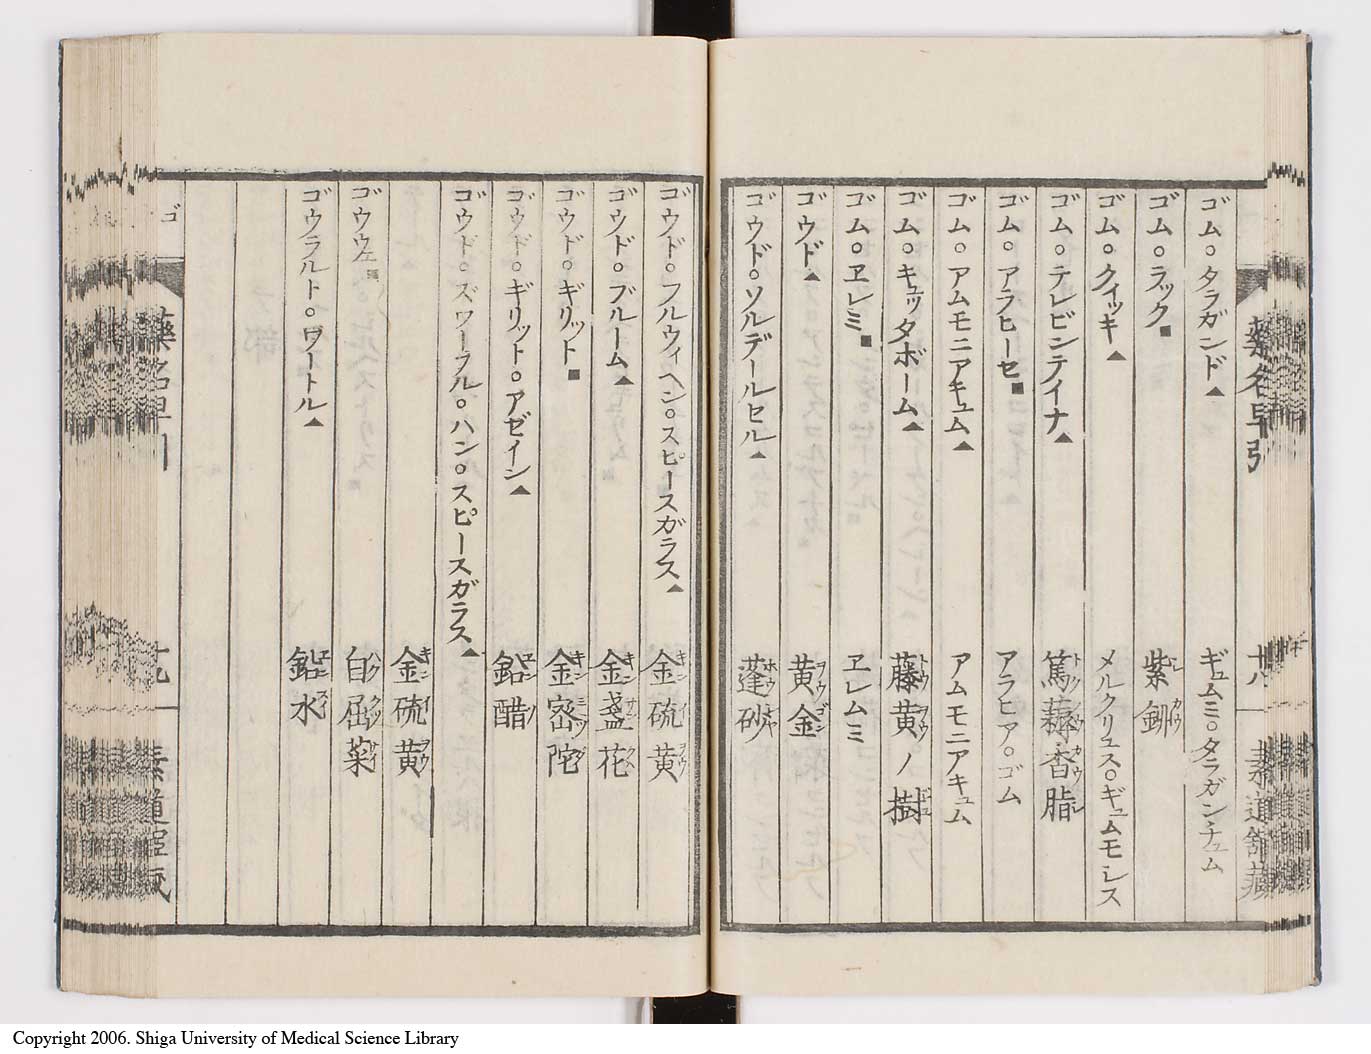 藥名早引
ゴム○タラガンド▲ ギュムミ○タラガンチュム
ゴム○ラック■ 紫鉚
ゴム○クイッキ▲ メルクリユス○ギュムモレス
ゴム○テレビンテイナ▲ 篤耨香脂
ゴム○アラヒーセ■ アラヒア○ゴム
ゴム○アムモニアキュム▲ アムモニアキュム
ゴム○キュッタボーム▲ 藤黄ノ樹
ゴム○ヱレミ■ ヱレムミ
ゴウド▲ 黄金
ゴウド○ソルデールセル▲ 蓬砂
ゴウド○フルウィヘン○スピースガラス▲ 金硫黄
ゴウド○ブルーム▲ 金盞花
ゴウド○ギリット■ 金密陀
ゴウド○ギリット○アゼイン▲ 鉛醋
ゴウド○ズワーフル○ハン○スピースガラス▲ 金硫黄
ゴウウェ■ 白屈菜
ゴウラルト○ワートル▲ 鉛水
ゴ
Copyright 2006. Shiga University of Medical Science Library